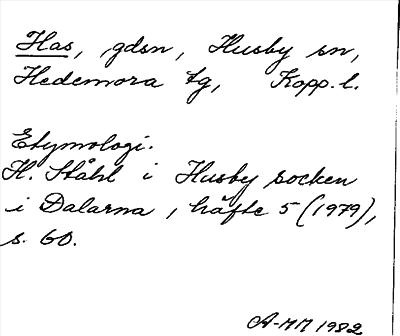 Has, gdsn, Husby sn,
Hedemora tg, Kopp. l.
Etymologi.
H. Ståhl i Husby socken
i Dalarna, häfte 5 (1979),
s. 60.
A-MM 1982